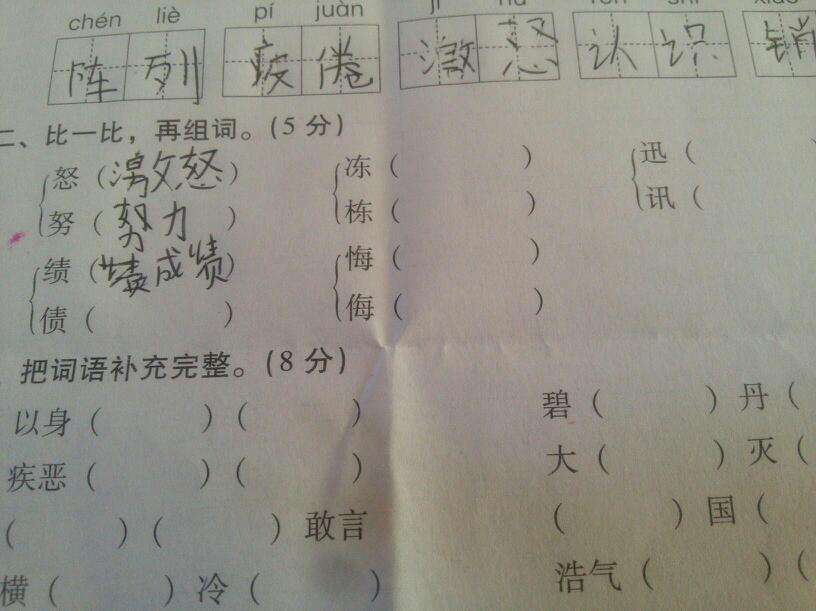 chén liè pí juàn jī nù rèn shi
阵列 疲倦 激怒 认识 销
二、比一比，再组词。(5分)
怒（激怒） 冻（ ） 迅（
努（努力） 栋（ ） 讯（
绩（成绩） 悔（ ）
债（ ） 侮（ ）
把词语补充完整。(8分)
以身（ ）（ ） 碧（ ）丹（
疾恶（ ）（ ） 大（ ）灭（
（ ）（ ）敢言 （ ）国（
横（ ）冷（ ） 浩气（ ）（